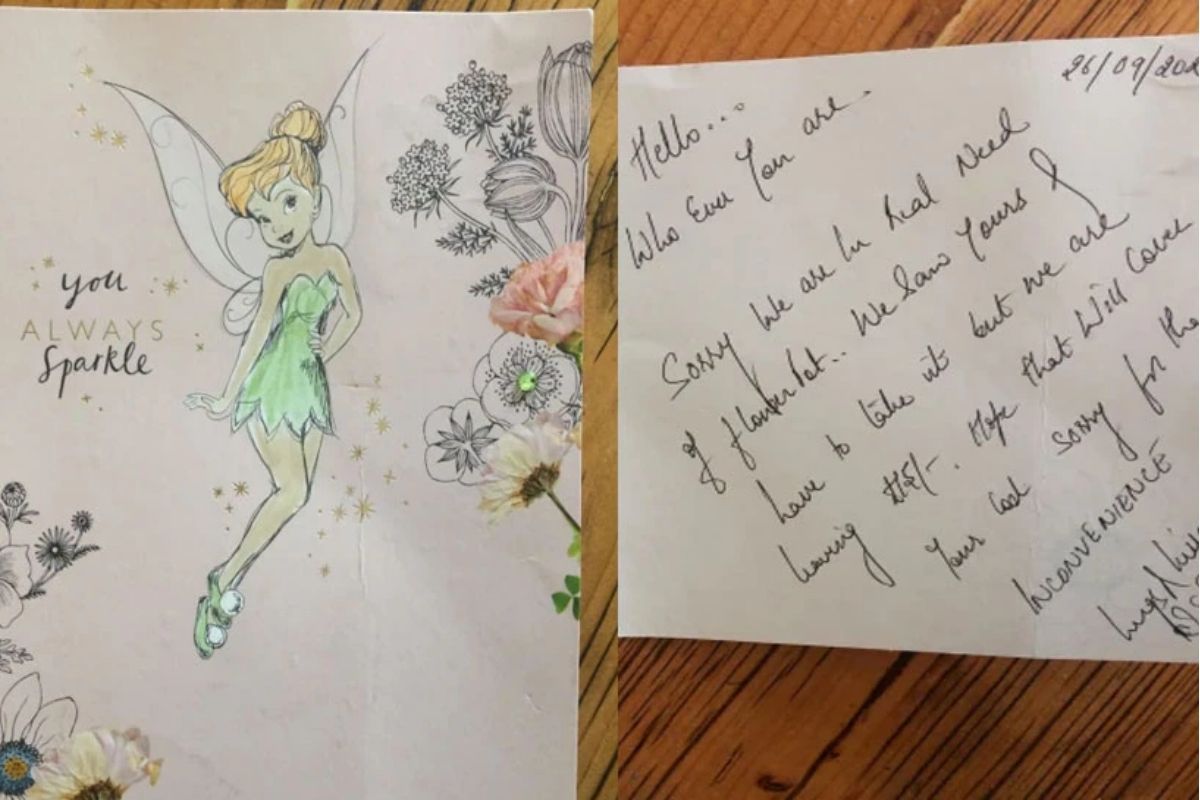 you
ALWAYS
Sparkle
26/09/202
Hello...
Who Ever You are.
Sorry We are In Real Need
of flower Pot.. We Saw Yours &
have to take it but we are
leaving Hope that Will cover
Your Cost Sorry for the
INCONVENIENCE